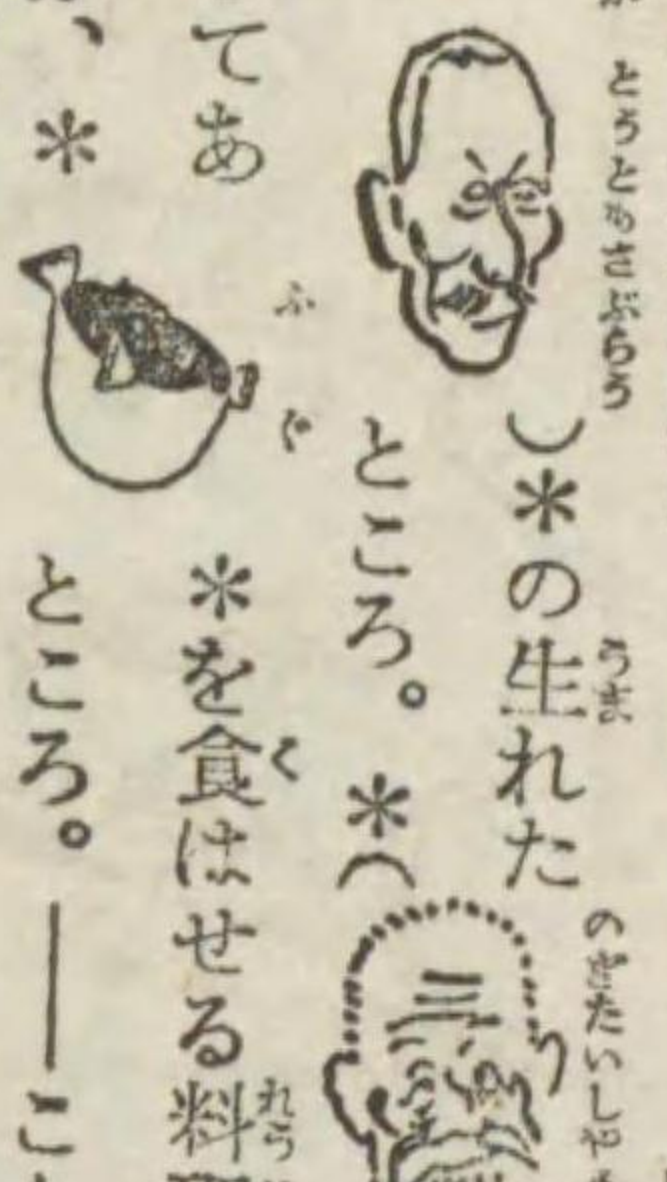 とうとめさぶらう
)*の生れた
うま
のぎたいしや
ところ。 *(
ふぐ
てあ *を食はせる料
く
れう
、* ところ。――こ